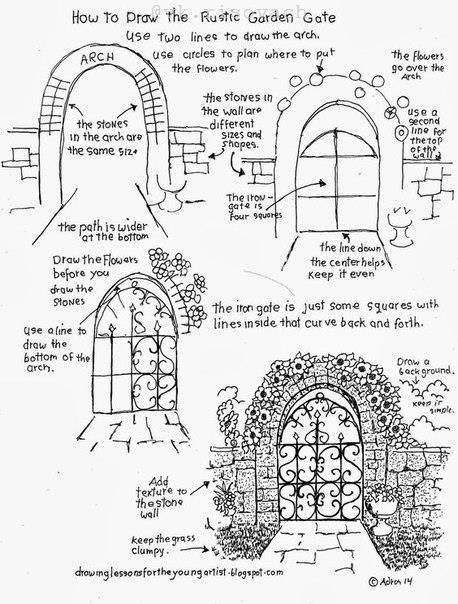 How to Draw the Rustic Garden Gate
Use two lines to draw the arch.
Use circles to plan where to put
the flowers.
ARCH
the stones
in the arch are
the same size
the stones in
the wall are
different
sizes and
shapes.
the flowers
go over the
Arch
use a
second
line for
the top
of the
wall
The iron-
gate is
four squares
the path is wider
at the bottom
the line down
the center helps
keep it even
Draw the Flowers
before you
draw the
stones
use a line to
draw the
bottom of the
arch.
The iron gate is just some squares with
lines inside that curve back and forth.
Draw a
background.
keep it
simple.
Add
texture to
the stone
wall
keep the grass
clumpy.
drawinglessonsfortheyoungartist.blogspot.com
© Adron 14